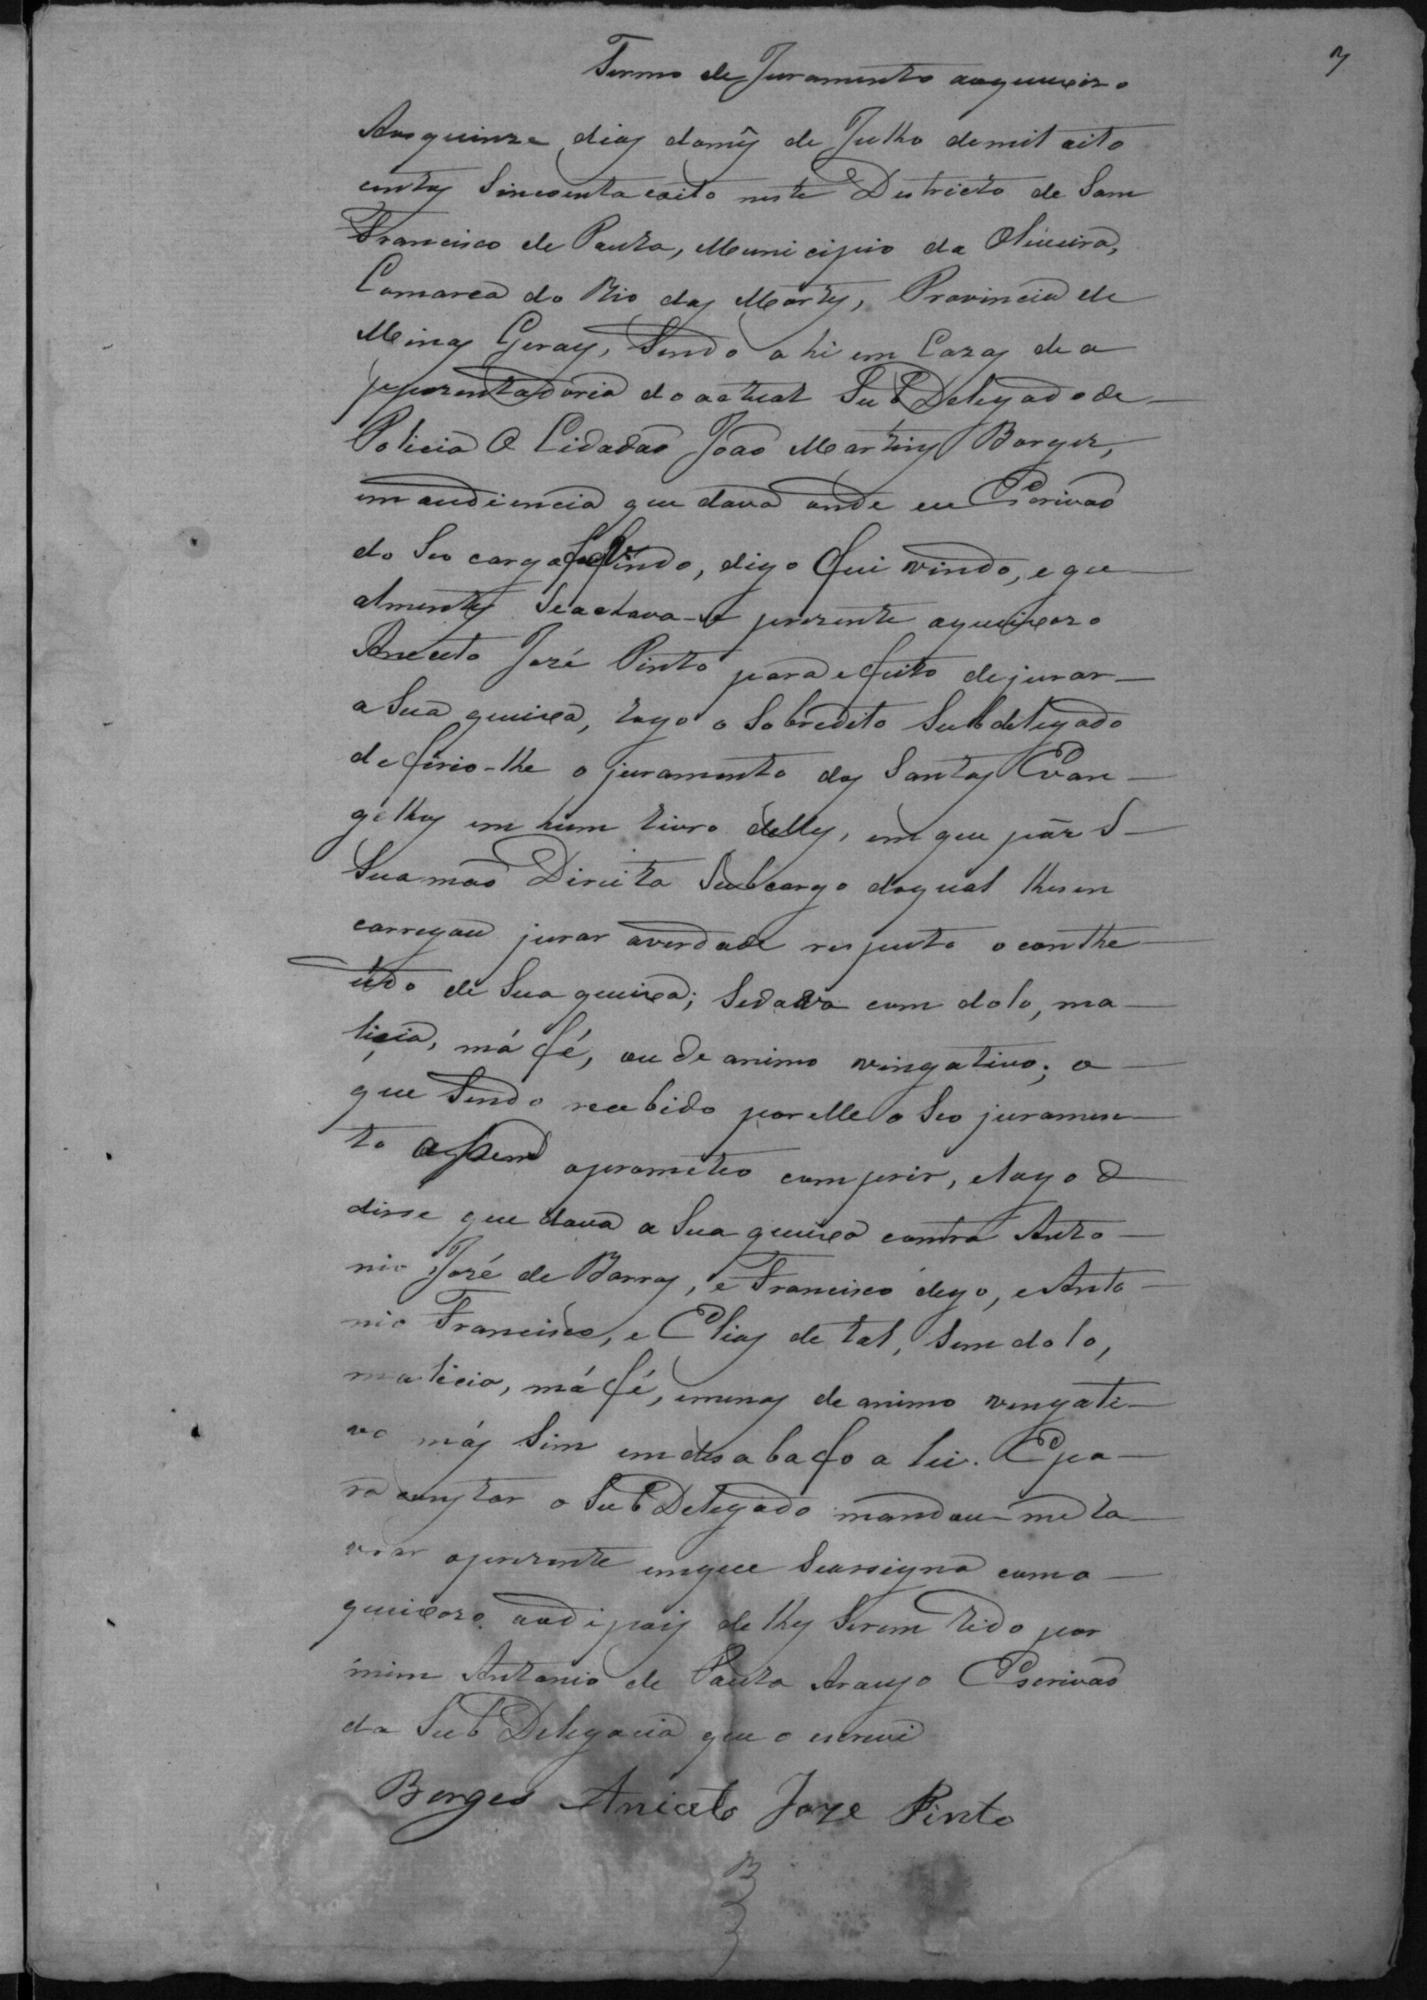 7
Termo de Juramento aoqueixozo
Aos quinze dias domês de Julho demil oito
centos Sincoenta eoito neste Destricto de Sam
Francisco de Paula, Municipio da Oliveira,
Comarca do Rio das Mortes, Provincia de
Minas Geraes, Sendo ahi em Cazas de a
pozentadoria do actual SubDelegado de
Policia O Cidadaõ Joaõ Martins Borges,
em audiencia que dava onde eu Escrivaõ
do Seo cargo vindo, digo fui vindo, e gu
almente Seachava-se prezente aqueixozo
Aniceto José Pinto para efeito dejurar
a Sua queixa, logo o Sobredito Subdelegado
deferio-lhe o juramento dos Santos Evan
gelhos em hum livro delles, em que pôs S
Sua maõ Direita Subcargo doqual lhe en
carregou jurar averdade respeito oconthe
údo de Sua queixa; Sedava com dolo, ma
licia, má fé, ou de animo vingativo; o
que Sendo recebido por elle o Seo juramen
to assim oprometeo comprir, elogo d
disse que dava a Sua queixa contra Anto
nio José de Barros, e Francisco dego, e Anto
nio Francisco, e Elias de tal, Sem dolo,
malicia, má fé, emenos de animo vingati
vo más Sim emdesabafo a lei. Epa
ra constar o SubDelegado mandou-me la
vrar oprezente emque Seassigna como
queixozo depois de lhes Serem lido por
mim Antonio de Paula Araujo Escrivaõ
da SubDelegacia que o escrevi
Borges Aniceto Joze Pinto